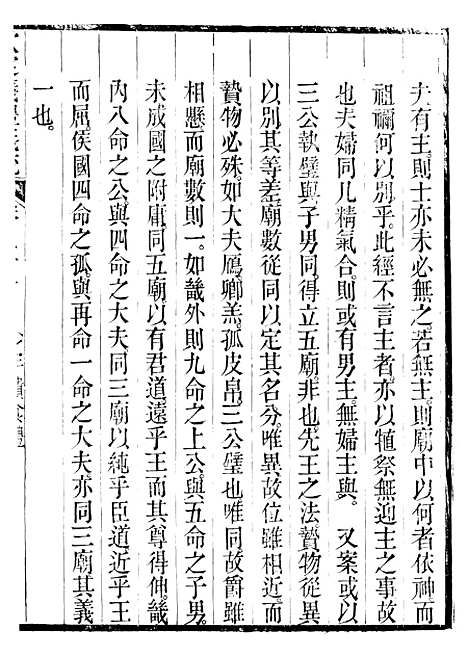 夫有主。則士亦未必無之。若無主。則廟中以何者依神而
祖禰何以別乎。此經不言主者。亦以犆祭無迎主之事故
也。夫婦同几精氣合。則或有男主。無婦主與。　又案或以
三公執璧與子男同。得立五廟。非也。先王之法贄物從異
以別其等差。廟數從同以定其名分。唯異故位雖相近而
贄物必殊。如大夫鴈。卿羔。孤皮帛。三公璧也。唯同故爵雖
相懸而廟數則一。如畿外則九命之上公。與五命之子男。
未成國之附庸。同五廟。以有君道遠乎王而其尊得伸。畿
內八命之公。與四命之大夫同三廟。以純乎臣道近乎王
而屈。侯國四命之孤。與再命一命之大夫亦同三廟。其義
一也。